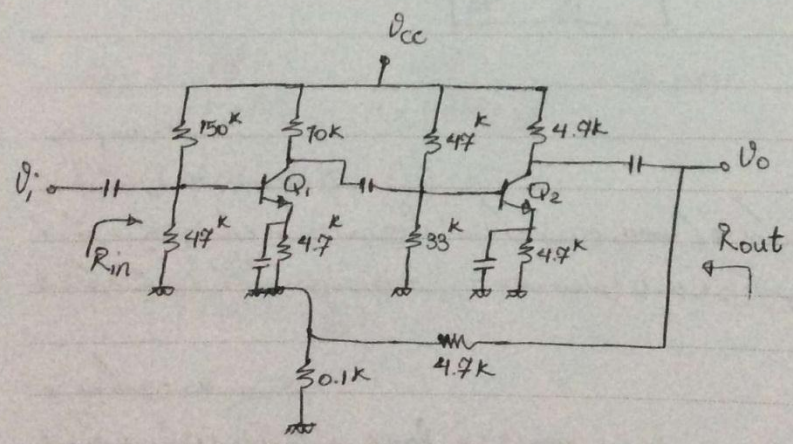 Vcc
150K
10K
47K
4.9K
Vi
Q1
Q2
Vo
Rin
47K
4.7K
33K
4.7K
Rout
4.7K
0.1K